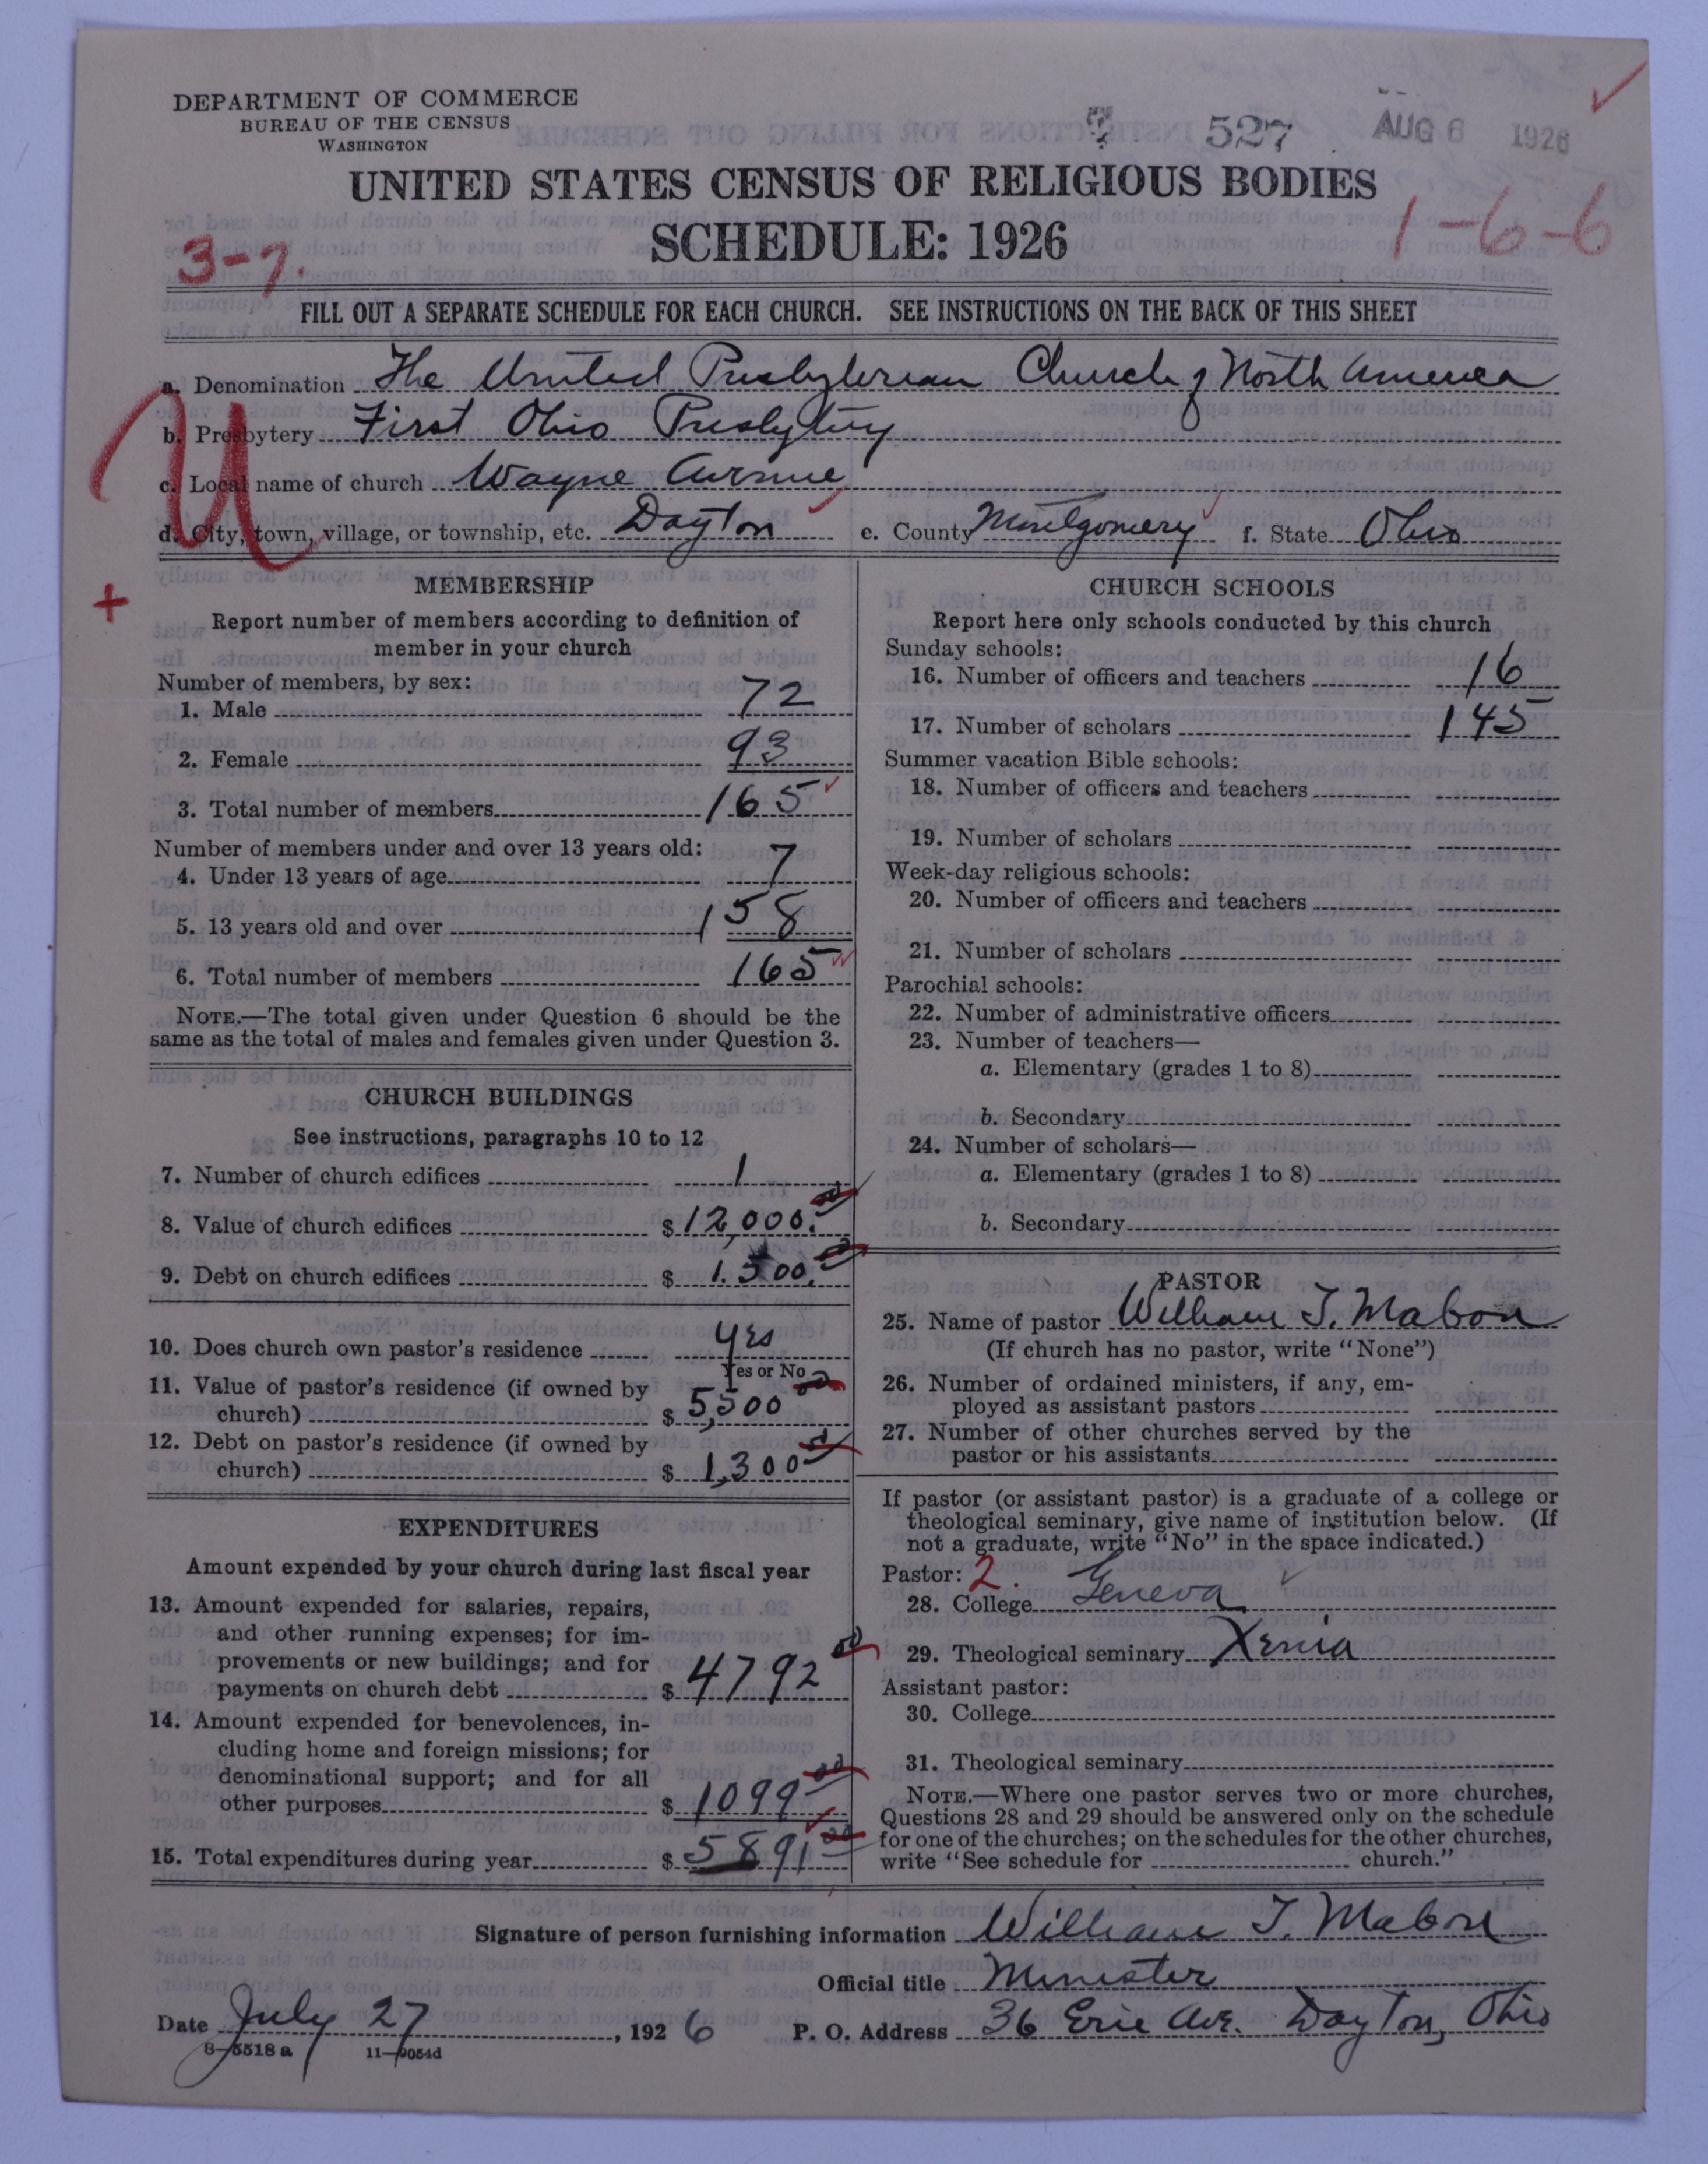 DEPARTMENT OF COMMERCE
BUREAU OF THE CENSUS
WASHINGTON
527 AUG 6 1926
UNITED STATES CENSUS OF RELIGIOUS BODIES
SCHEDULE: 1926
3-7.
1-6-6
FILL OUT A SEPARATE SCHEDULE FOR EACH CHURCH. SEE INSTRUCTIONS ON THE BACK OF THIS SHEET
a. Denomination The United Presbyterian Church of North America
b. Presbytery First Ohio Presbytery
c. Local name of church Wayne Avenue
d. City, town, village, or township, etc. Dayton e. County Montgomery f. State Ohio
U
+
MEMBERSHIP
Report number of members according to definition of
member in your church
Number of members, by sex:
1. Male 72
2. Female 93
3. Total number of members 165
Number of members under and over 13 years old:
4. Under 13 years of age 7
5. 13 years old and over 158
6. Total number of members 165
NOTE.—The total given under Question 6 should be the
same as the total of males and females given under Question 3.
CHURCH BUILDINGS
See instructions, paragraphs 10 to 12
7. Number of church edifices 1
8. Value of church edifices $ 12,000.00
9. Debt on church edifices $ 1.500.00
10. Does church own pastor's residence yes
Yes or No
11. Value of pastor's residence (if owned by
church) $ 5,500 00
12. Debt on pastor's residence (if owned by
church) $ 1,300 00
EXPENDITURES
Amount expended by your church during last fiscal year
13. Amount expended for salaries, repairs,
and other running expenses; for im-
provements or new buildings; and for
payments on church debt $ 4792 00
14. Amount expended for benevolences, in-
cluding home and foreign missions; for
denominational support; and for all
other purposes $ 1099 00
15. Total expenditures during year $ 5891 00
CHURCH SCHOOLS
Report here only schools conducted by this church
Sunday schools:
16. Number of officers and teachers 16
17. Number of scholars 145
Summer vacation Bible schools:
18. Number of officers and teachers
19. Number of scholars
Week-day religious schools:
20. Number of officers and teachers
21. Number of scholars
Parochial schools:
22. Number of administrative officers
23. Number of teachers—
a. Elementary (grades 1 to 8)
b. Secondary
24. Number of scholars—
a. Elementary (grades 1 to 8)
b. Secondary
PASTOR
25. Name of pastor William T. Mabon
(If church has no pastor, write "None")
26. Number of ordained ministers, if any, em-
ployed as assistant pastors
27. Number of other churches served by the
pastor or his assistants
If pastor (or assistant pastor) is a graduate of a college or
theological seminary, give name of institution below. (If
not a graduate, write "No" in the space indicated.)
Pastor: 2.
28. College Geneva
29. Theological seminary Xenia
Assistant pastor:
30. College
31. Theological seminary
NOTE.—Where one pastor serves two or more churches,
Questions 28 and 29 should be answered only on the schedule
for one of the churches; on the schedules for the other churches,
write "See schedule for church."
Signature of person furnishing information William T. Mabon
Official title Minister
Date July 27, 1926 P. O. Address 36 Erie Ave. Dayton, Ohio
8-5518 a 11-9054d